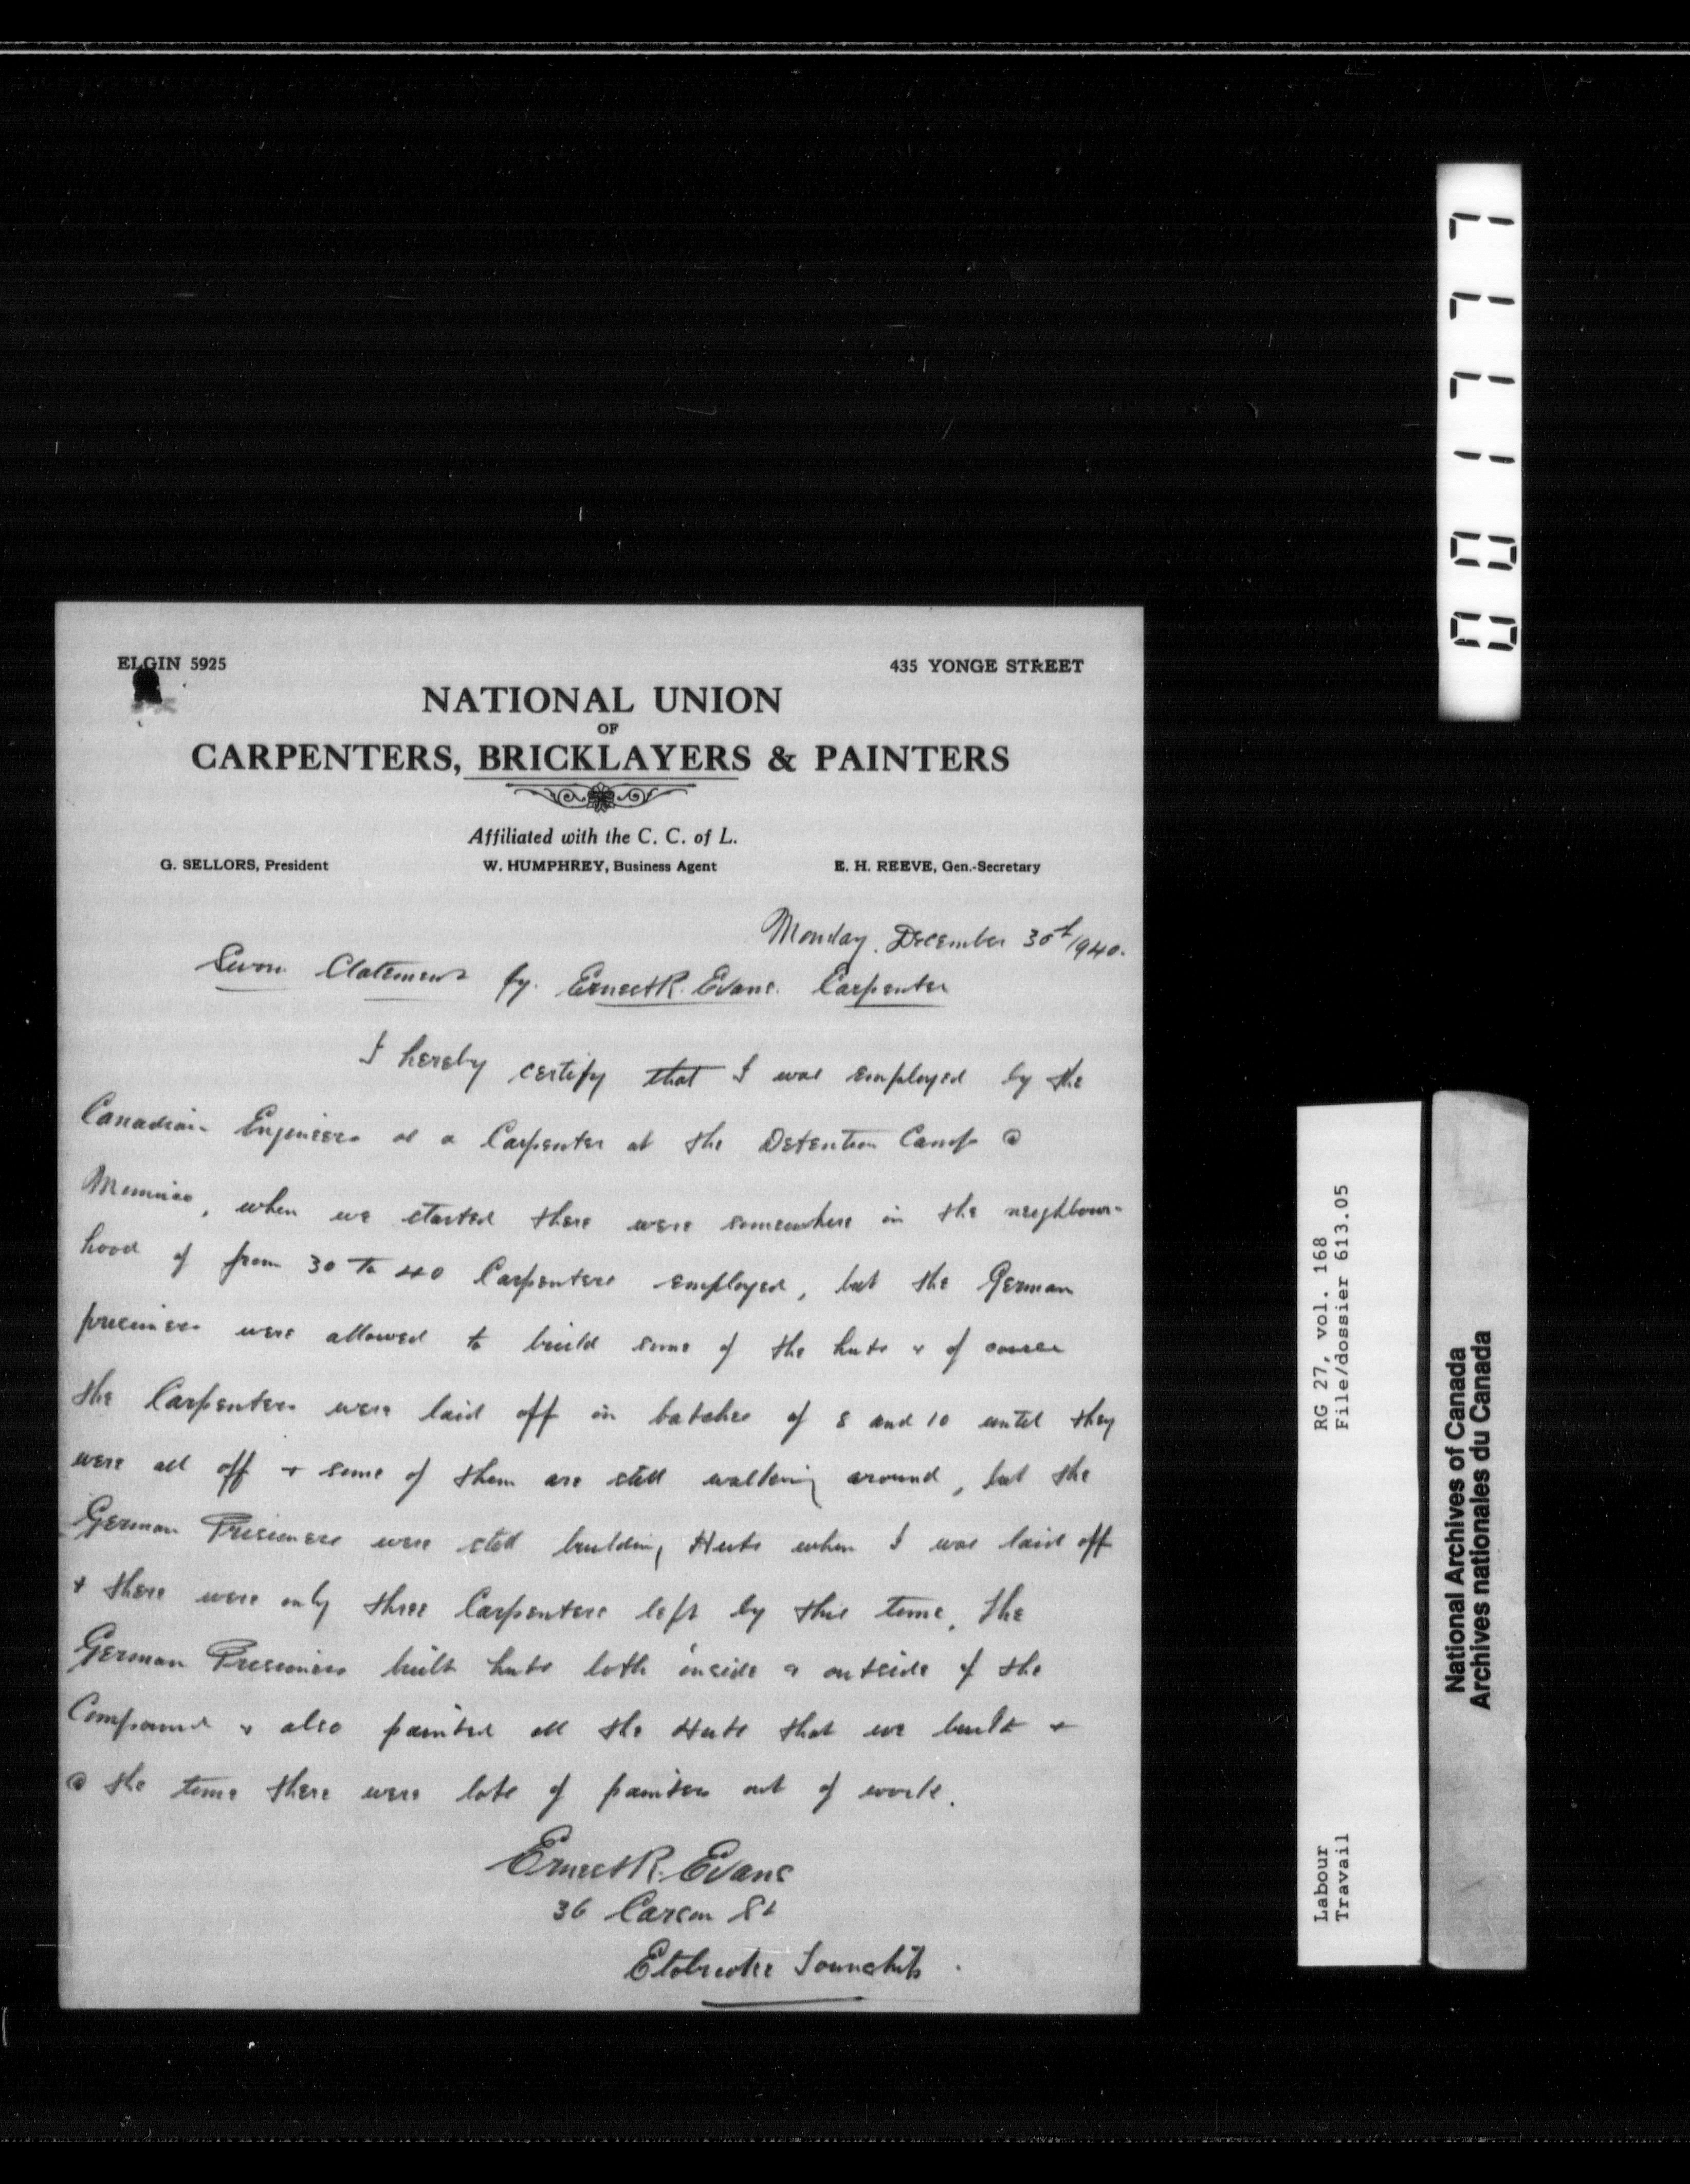 ELGIN 5925
435 YONGE STREET
NATIONAL UNION
OF
CARPENTERS, BRICKLAYERS & PAINTERS
Affiliated with the C. C. of L.
G. SELLORS, President W. HUMPHREY, Business Agent E. H. REEVE, Gen.-Secretary
Monday. December 30th/1940.
Sworn Statement by. Ernest R. Evans. Carpenter
I hereby certify that I was employed by the
Canadian Engineers as a Carpenter at the Detention Camp @
Mimico, when we started there were somewhere in the neighbour-
hood of from 30 to 40 Carpenters employed, but the German
prisoners were allowed to build some of the huts & of course
the Carpenters were laid off in batches of 8 and 10 until they
were all off & some of them are still walking around, but the
German Prisoners were still building Huts when I was laid off
& there were only three Carpenters left by this time, the
German Prisoners built huts both inside & outside of the
Compound & also painted all the Huts that we built &
@ the time there were lots of painters out of work.
Ernest R. Evans
36 Carson St
Etobicoke Township.
001777
RG 27, vol. 168
File/dossier 613.05
Labour
Travail
National Archives of Canada
Archives nationales du Canada